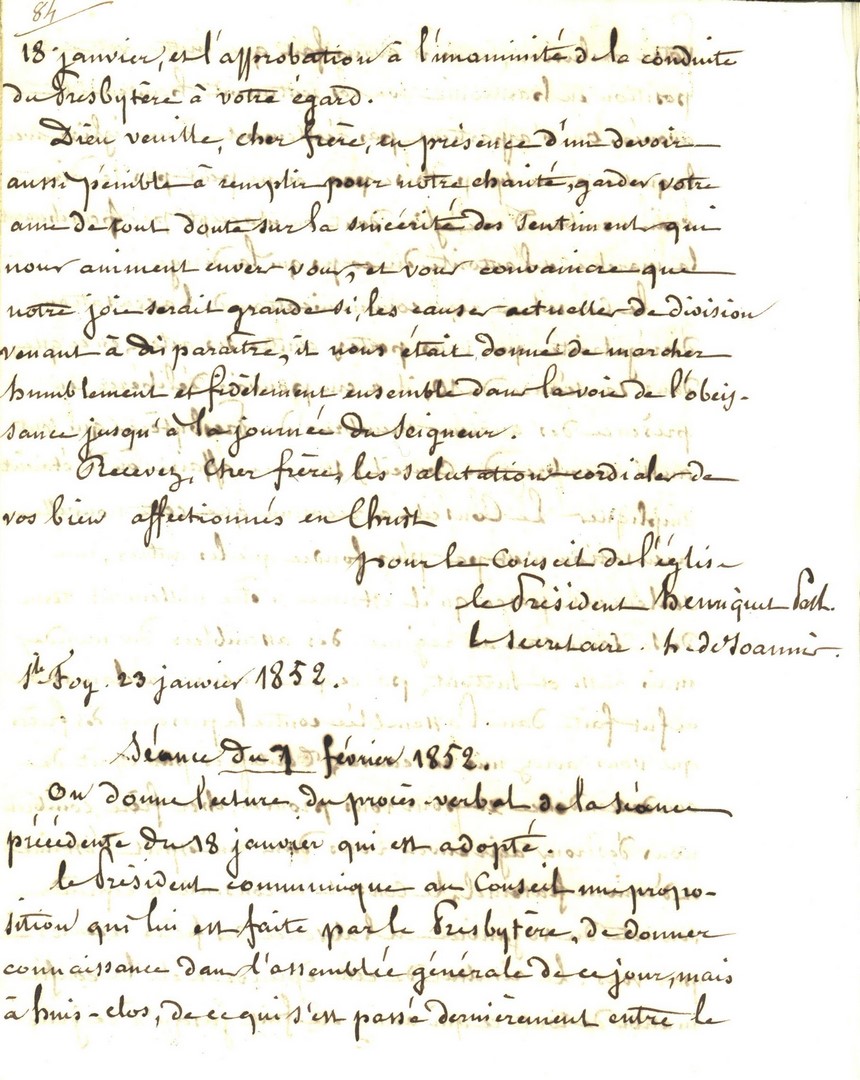 84
18 janvier, et l'approbation à l'unaminité de la conduite
du Presbytère à votre égard.
Dieu veuille, cher frère, en présence d'un devoir
aussi pénible à remplir pour notre charité, garder votre
ame de tout doute sur la sincérité des sentiment qui
nous animent envers vous, et vous convaincre que
notre joie serait grande si, les causes actuelles de division
venant à disparaître, il nous était donné de marcher
humblement et fidèlement ensemble dans la voie de l'obeis-
sance jusqu'à la journée du Seigneur.
Recevez, Cher frère, les salutations cordiales de
vos bien affectionnés en Christ
pour le Conseil de l'église
le Président Henriquet Past.
le secretaire. h. de Joannis.
Ste Foy. 23 janvier 1852.
Séance du 1 février 1852.
On donne lecture du procès-verbal de la séance
précédente du 18 janvier qui est adopté.
le Président communique au Conseil une propo-
sition qui lui est faite par le Presbytère, de donner
connaissance dans l'assemblée générale de ce jour, mais
à huis-clos, de ce qui s'est passé dernièrement entre le